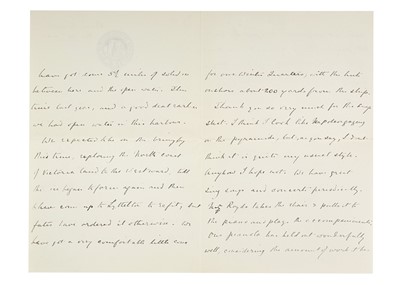 have got some 5½ miles of solid ice
between here and the open water. This
time last year, and a good deal earlier
we had open water in this harbour.
We expected to be in the
this time, exploring the North coast
of Victoria Land to the Westward, till
the ice began to form again and then
have come up to Lyttelton to refit, but
fates have ordered it otherwise. We
have got a very comfortable little cove
for our Winter Quarters, with the hut
onshore about 200 yards from the ship.
Thank you so very much for the
. I think I look like Napoleon gazing
at the pyramids, but, as you say, I don't
think it is quite my usual style.
Anyhow I hope not. We have great
Sing Songs and concerts periodically.
Royds takes the chair & pulls it to
the piano and plays the accompaniments.
Our pianola has held out wonderfully
well, considering the amount of work it has